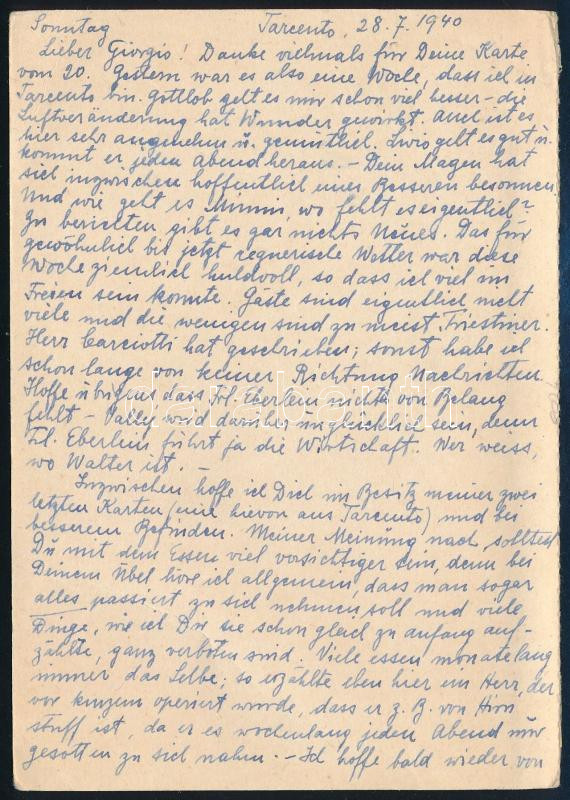 Sonntag Tarcento, 28.7.1940
Lieber Giorgio! Danke vielmals für Deine Karte
vom 20. Gestern war es also eine Woche, dass ich in
Tarcento bin. Gottlob geht es mir schon viel besser – die
Luftveränderung hat Wunder gewirkt. Auch ist es
hier sehr angenehm u. gemütlich. Livio geht es gut u.
kommt er jeden Abend heraus. – Dein Magen hat
sich inzwischen hoffentlich eines Besseren besonnen.
Und wie geht es Mimmi, wo fehlt es eigentlich?
Zu berichten gibt es gar nichts Neues. Das für
gewöhnlich bis jetzt regnerische Wetter war diese
Woche ziemlich huldvoll, so dass ich viel im
Freien sein konnte. Gäste sind eigentlich nicht
viele und die wenigen sind zu meist Triestiner.
Herr Carciotti hat geschrieben; sonst habe ich
schon lange von keiner Richtung Nachrichten.
Hoffe übrigens dass Frl. Eberlein nichts von Belang
fehlt – wird darüber unglücklich sein, denn
Frl. Eberlein führt ja die Wirtschaft. Wer weiss,
wo Walter ist. –
Inzwischen hoffe ich Dich im Besitz meiner zwei
letzten Karten (eine hievon aus Tarcento) und bei
besserem Befinden. Meiner Meinung nach solltest
Du mit dem Essen viel vorsichtiger sein, denn bei
Deinem Übel höre ich allgemein, dass man sogar
alles passiert zu sich nehmen soll und viele
Dinge, wie ich Dir sie schon gleich zu anfang auf-
zählte, ganz verboten sind. Viele essen monatelang
immer das Selbe; so erzählte eben hier ein Herr, der
vor kurzem operiert wurde, dass er z. B. von Hirn
stuff ist, da er es wochenlang jeden Abend nur
gesotten zu sich nahm. – Ich hoffe bald wieder von
darabanth